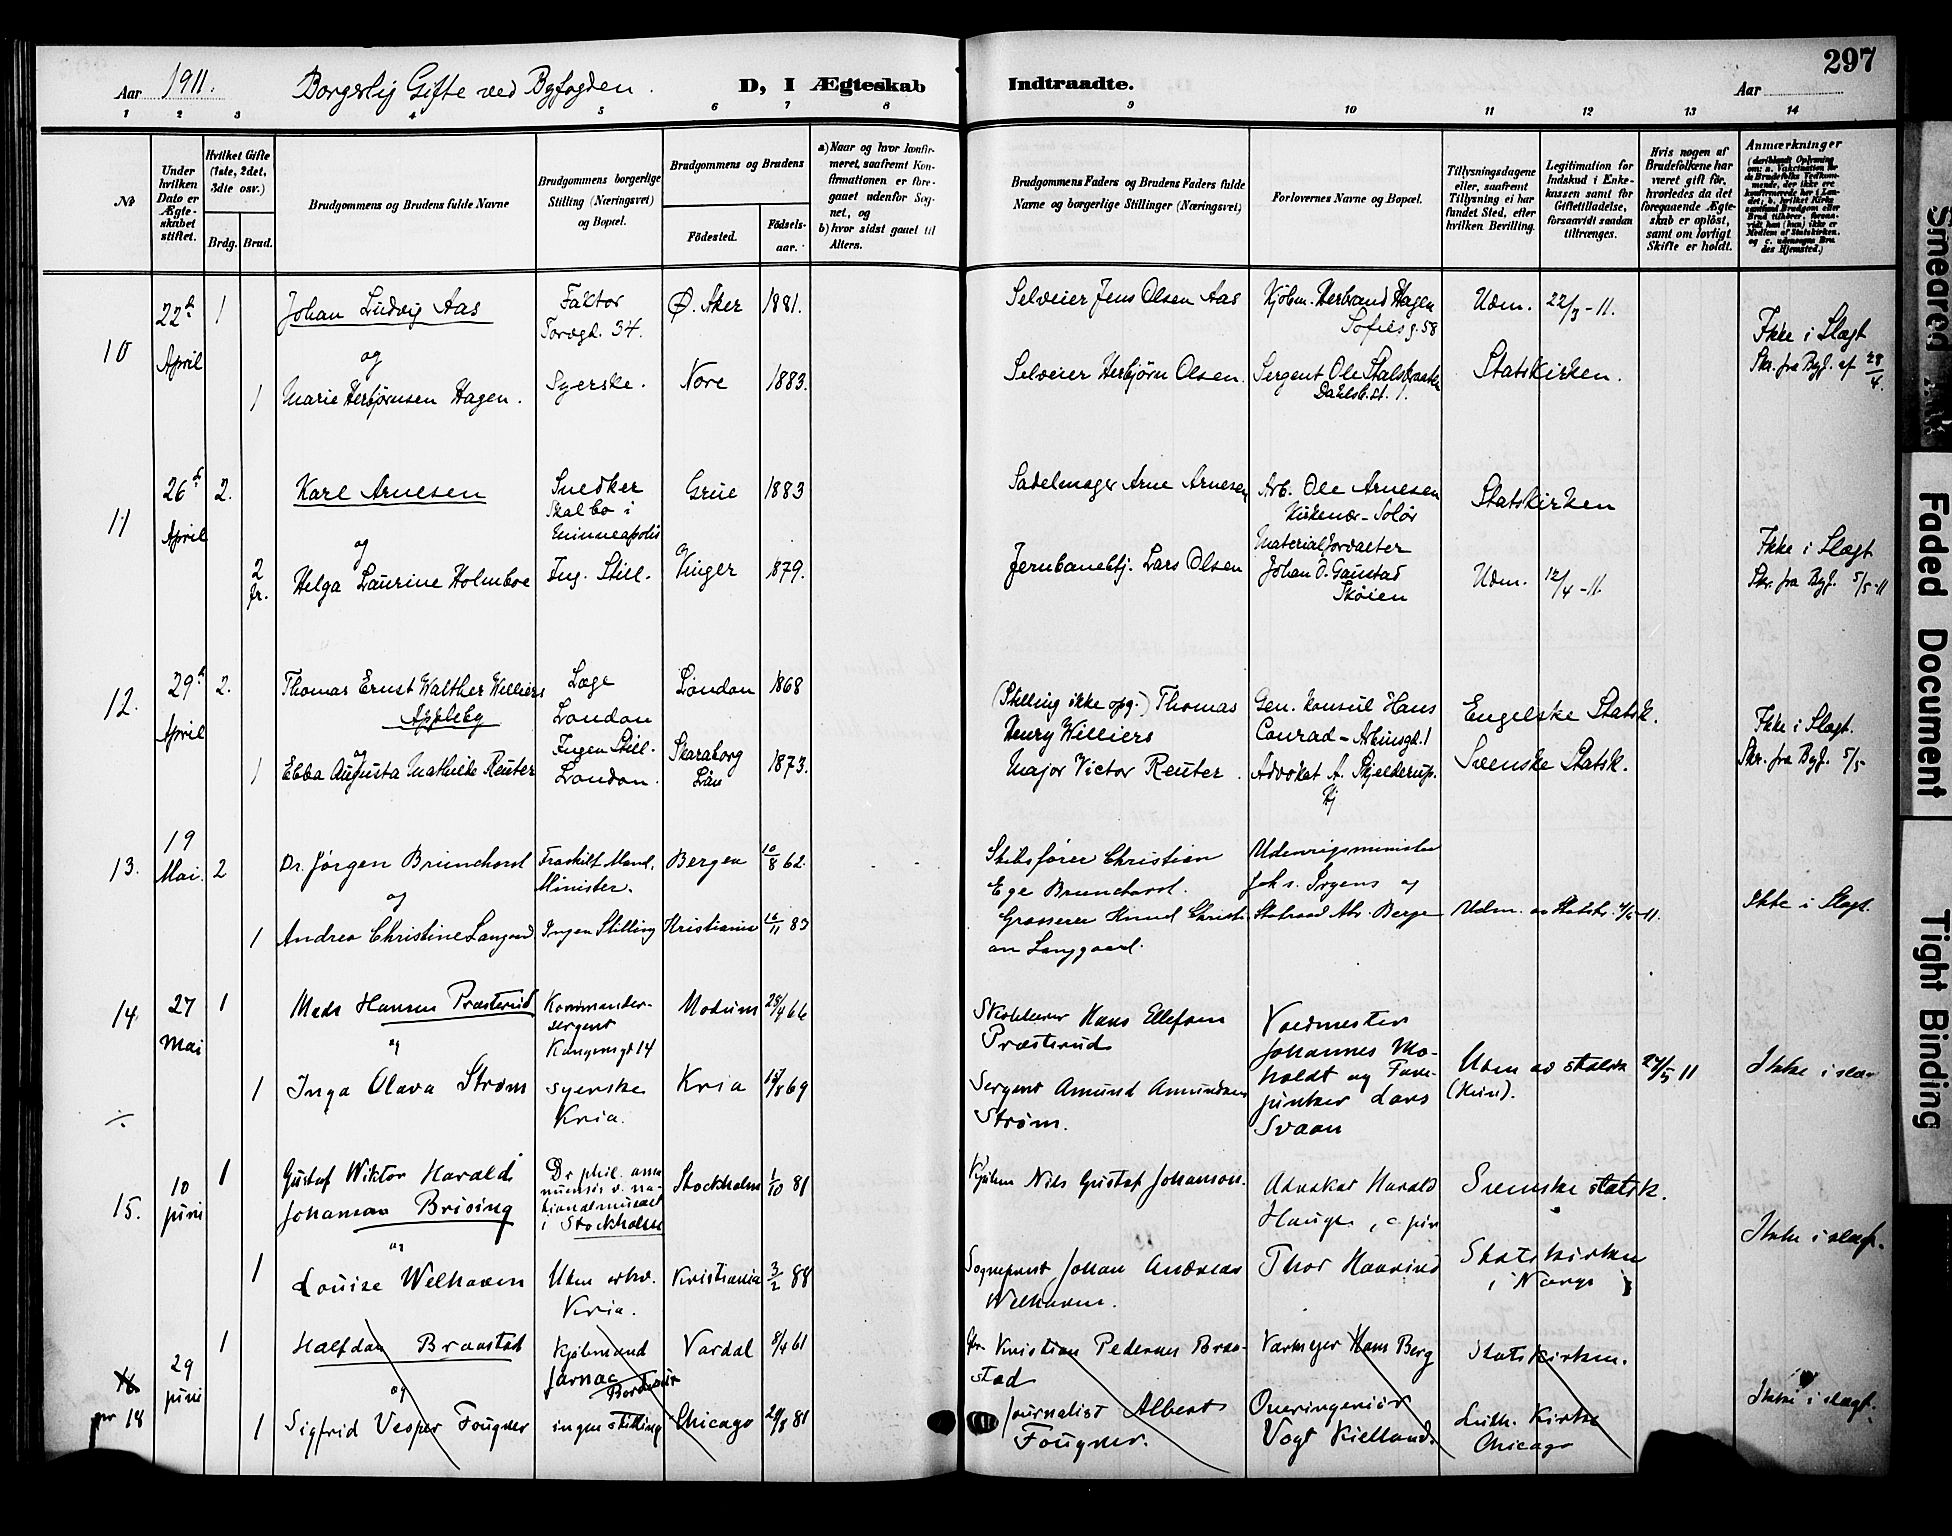 297
Aar 1911. Borgerlig Gifte ved Byfogden. D, I Ægteskab Indtraadte. Aar
1 2 3 4 5 6 7 8 9 10 11 12 13 14
№
Under hvilken Dato er Ægteskabet stiftet.
Hvilket Gifte (1ste, 2det, 3die osv.)
Brdg. Brud.
Brudgommens og Brudens fulde Navne
Brudgommens borgerlige Stilling (Næringsvei) og Bopæl.
Brudgommens og Brudens
Fødested. Fødselsaar.
a) Naar og hvor konfirmeret, saafremt Konfirmationen er foregaaet udenfor Sognet, og
b) hvor sidst gaaet til Alters.
Brudgommens Faders og Brudens Faders fulde Navne og borgerlige Stillinger (Næringsvei)
Forlovernes Navne og Bopæl.
Tillysningsdagene eller, saafremt Tillysning ei har fundet Sted, efter hvilken Bevilling.
Legitimation for Indskud i Enkekassen samt for Giftetilladelse, forsaavidt saadan tiltrænges.
Hvis nogen af Brudefolkene har været gift før, hvorledes da det foregaaende Ægteskab er opløst, samt om lovligt Skifte er holdt.
Anmærkninger
10 22d April 1 Johan Ludvig Aas Faktor Torvgd. 34. Ø. Aker 1881. Selveier Jens Olsen Aas Kjøbm. Herbrand Hagen Sofies g. 58 Udm. 22/3-11. Ikke i Slægt
og
1 Marie Herbjørnsen Hagen. Syerske. Nore 1883. Selveier Herbjørn Olsen. Sergent Ole Dahlsb. st. 1. Statskirken. Skr. fra Byf. af 28/4.
11 26d April 2. Karl Arnesen Snedker Skal bo i Minneapolis Grue 1883 Sadelmager Arne Arnesen Arb. Ole Arnesen Kirkenær-Solør Statskirken
og
2 fr. Helga Laurine Holmboe Ing. Still. Vinger 1879. Jernbanebtj. Lars Olsen Materialforvalter Johan O. Gaustad Skøien Udm. 12/4-11. Ikke i Slægt Skr. fra Byf. 5/5-11
12. 29d April 2. Thomas Ernst Walther Williers Appleby Læge London London 1868 (Stilling ikke opg.) Thomas Henry Williers Gen. konsul Hans Conrad - Arbinsgd. 1 Engelske Statsk. Ikke i Slægt.
og
1 Ebba Augusta Mathilde Reuter Ingen Still. London. Skaraborg Län 1873. Major Victor Reuter. Advokat A. Skjelderup. Hj Svenske Statsk. Skr. fra Byf. 5/5
13. 19 Mai. 2 Dr. Jørgen Brunchorst Fraskilt Mand. Minister. Bergen 10/8 62. Skibsfører Christian Ege Brunchorst. Udenrigsminister Johs. Irgens og
og
1 Andrea Christine Langaard Ingen Stilling Kristiania 16/11 83 Grosserer Knud Christian Langgaard. Statsraad Abr. Berge Udm. av Statsk. Ikke i Slægt.
14. 27 Mai 1 Mads Hansen Præsterud Kommandersergent Kongensgt 14 Modum 25/4 66 Hans Ellefsen Præsterud Johannes Moholdt og Lars Svaan
og
1 Inga Olava Strøm syerske Kria. Kria 15/8 69 Sergent Amund Amundsen Strøm. Udm av statsk (Hun). 27/5 11 Ikke i slæ
÷
15. 10 juni 1 Gustaf Wiktor Harald Johanson Brising Dr phil. amanuensis v. nationalmuseet i Stockholm Stockholm 1/10 81 Kjøbm Nils Gustaf Johanson. Advokat Harald Hauge, c. piv Svenske statsk.
og
1 Louise Welhaven Uden erhv. Kria. Kristiania 3/2 88 Sogneprest Johan Andreas Welhaven. Thor Statskirken i Norge Ikke i slægt.
16 nr 18 29 juni 1 Halfdan Braastad Kjøbmand Jarnac Bordeaux Vardal 8/4 61 Kristian Pedersen Braastad Hans Berg Statskirken.
og
1 Sigfrid Vesper Fougner ingen stilling Chicago 81 Journalist Albert Fougner. Overingeniør Vogt Kielland. Luth. Kirke Chicago Ikke i slægt.
Smeared
Faded Document
Tight Binding